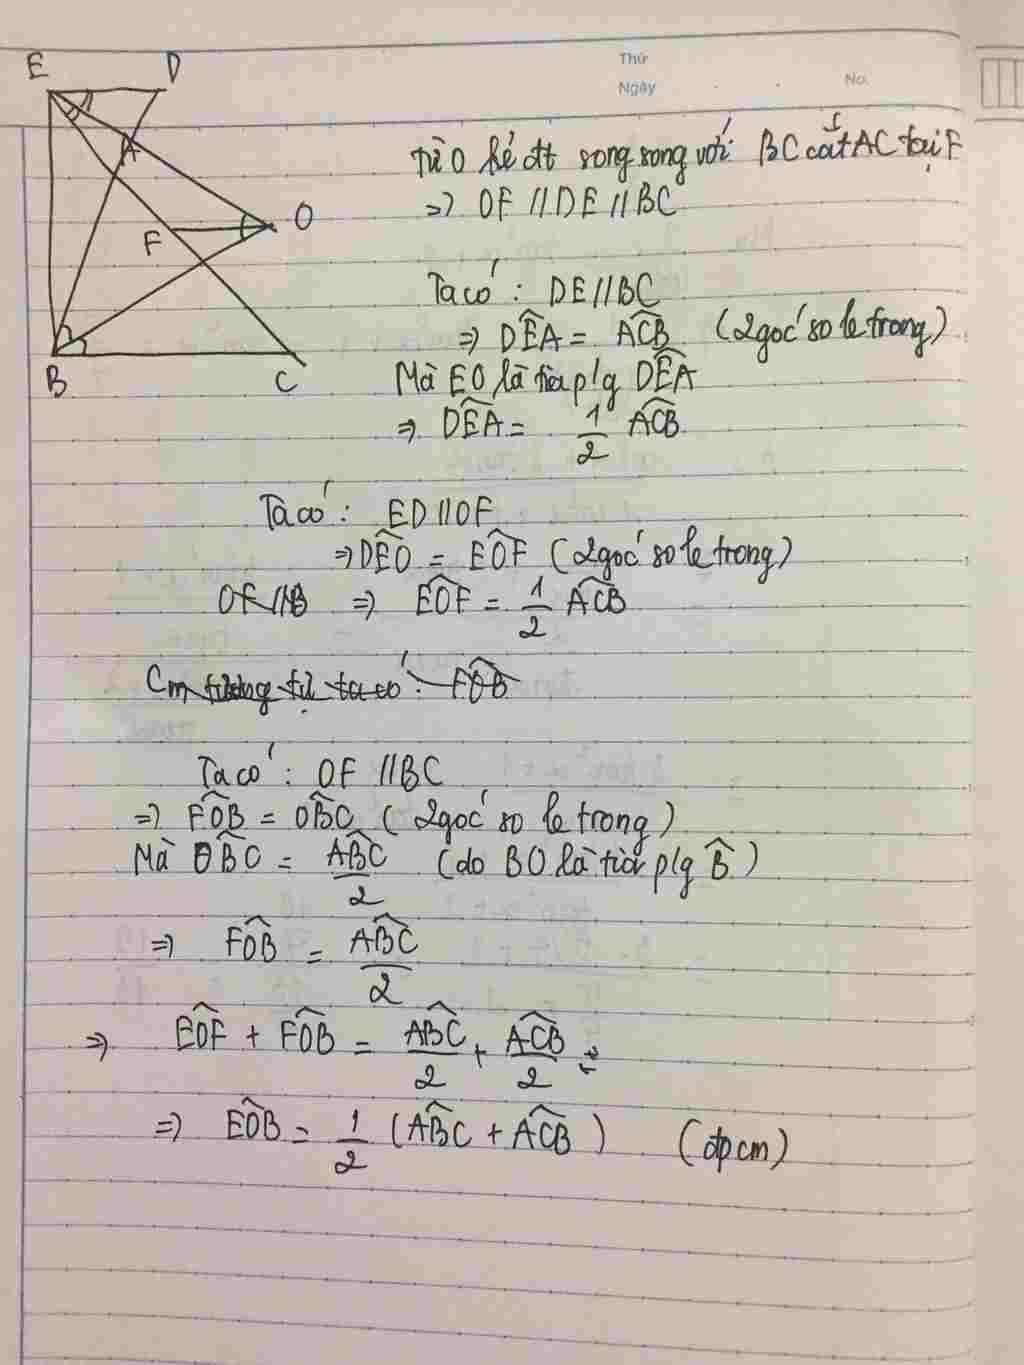 E D
Thứ
Ngày No.
A
O
F
B C
từ O kẻ đt song song với BC cắt AC tại F
=> OF // DE // BC
Ta có : DE // BC
=> DÊA = AĈB (2 góc so le trong)
Mà EO là tia p/g DÊA
=> DÊA = 1/2 AĈB
Ta có : ED // OF
=> DÊO = EÔF (2 góc so le trong)
OF // B => EÔF = 1/2 AĈB
Cm tương tự ta có : FÔB
Ta có : OF // BC
=> FÔB = OB̂C (2 góc so le trong)
Mà OB̂C = AB̂C/2 (do BO là tia p/g B̂)
=> FÔB = AB̂C/2
=> EÔF + FÔB = AB̂C/2 + AĈB/2
=> EÔB = 1/2 (AB̂C + AĈB) (đpcm)